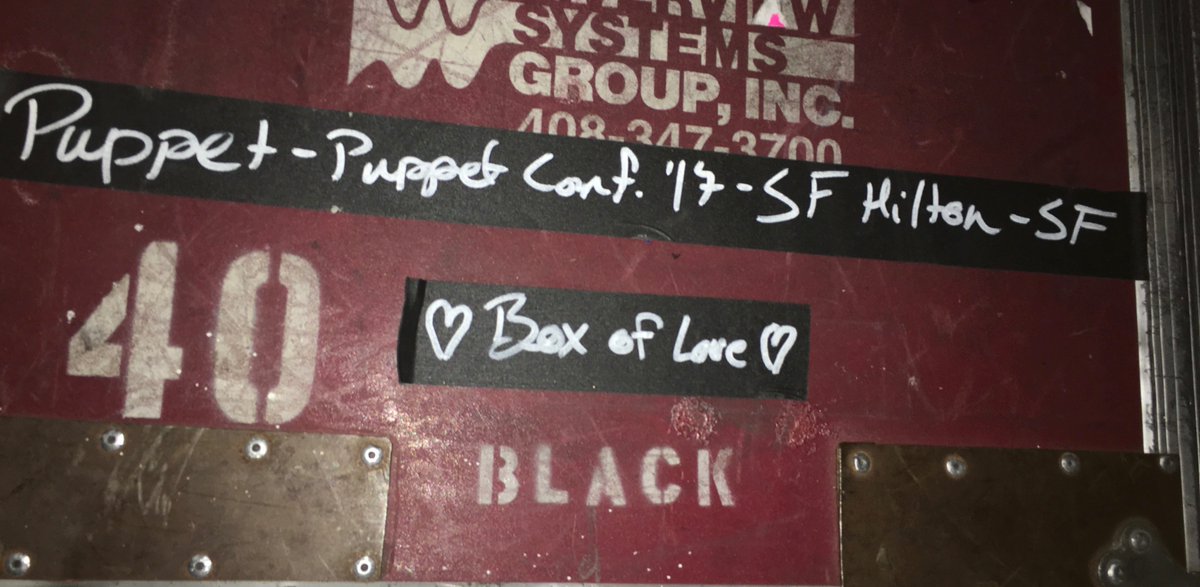 SYSTEMS
GROUP, INC.
408-347-3700
Puppet - Puppet Conf. '17 - SF Hilton - SF
40
♡ Box of Love ♡
BLACK